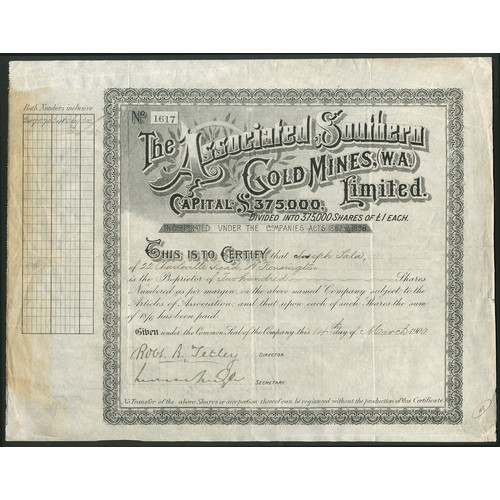 Both Numbers inclusive
No 1617
The Associated Southern
Gold Mines, (W.A.)
Limited.
Capital £375,000,
Divided into 375,000 Shares of £1 each.
Incorporated under the Companies Acts 1862 to 1898
This is to Certify that Joseph Sala,
of 22 Charleville Road, W. Kensington
is the Proprietor of Two hundred Shares
Numbered as per margin, in the above named Company subject to the
Articles of Association; and that upon each of such Shares the sum
of has been paid.
Given under the Common Seal of the Company this 14th day of March
Robt. B. Tetley Director
Secretary
No Transfer of the above Shares or any portion thereof can be registered without the production of this Certificate